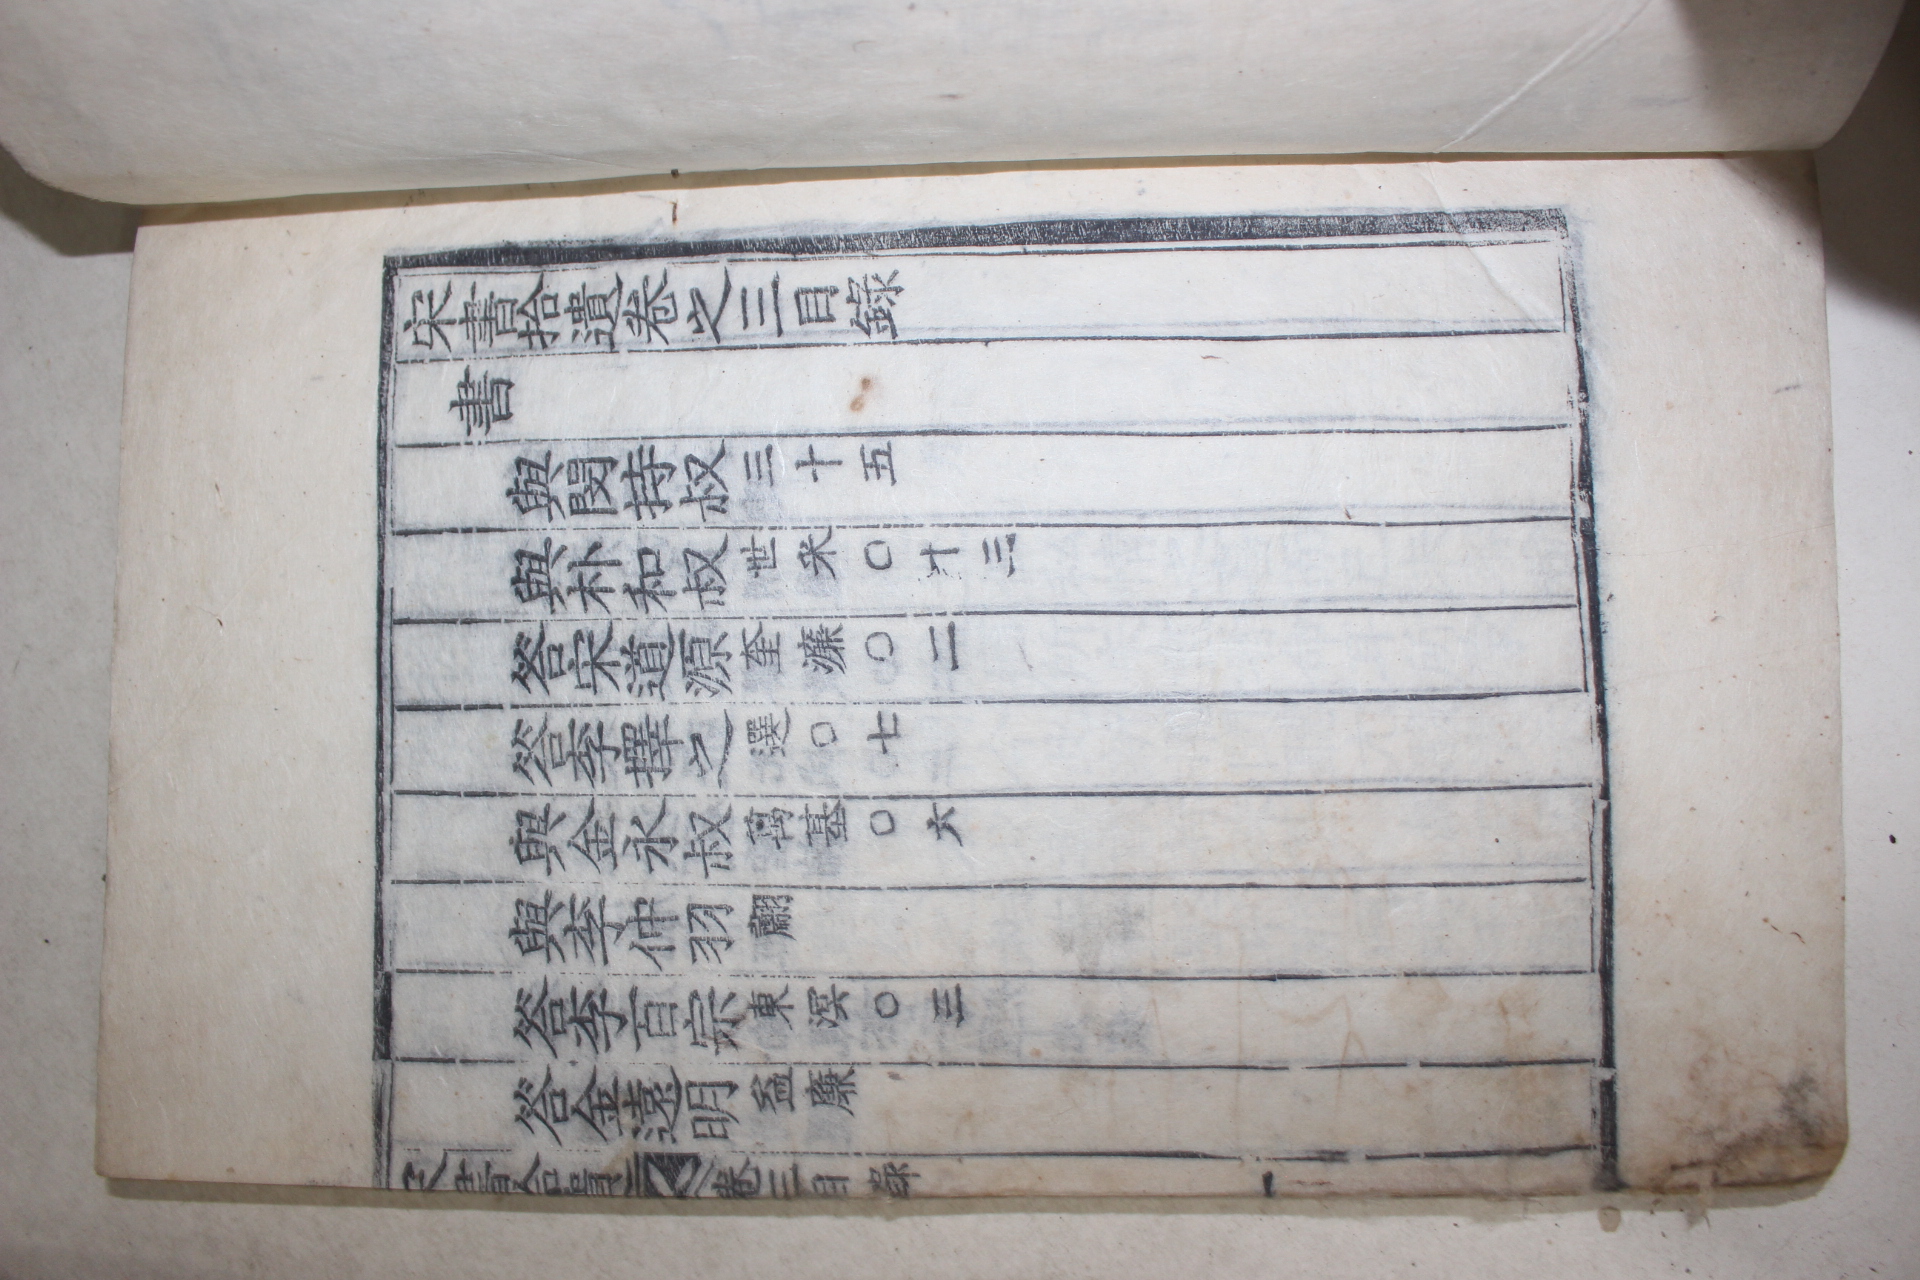 宋書拾遺卷之三目錄
書
與閔持叔三十五
與朴和叔世采○十三
答宋道源奎濂○二
答李擇之選○七
與金永叔萬基○六
與李仲羽䎘
答李百宗東溟○三
答金遠明益廉
宋書拾遺卷三目錄